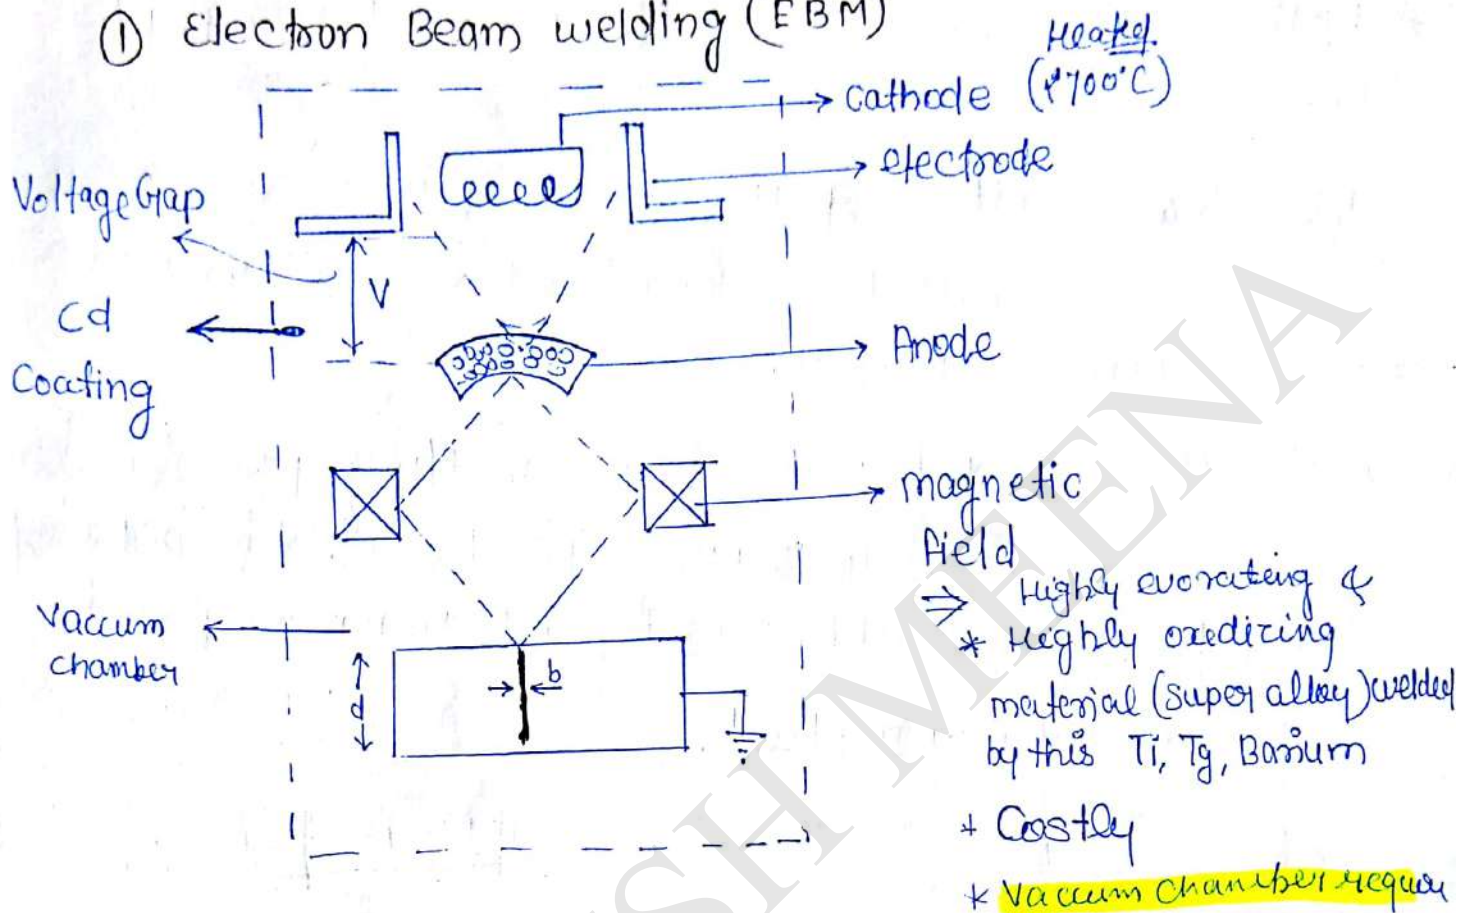 ① Electron Beam welding (EBM)
Heated.
Cathode (1700°C)
electrode
Voltage Gap
V
Cd
Coating
Anode
magnetic
field
Vaccum
chamber
b
d
⇒ Highly evorating &
* Highly oxedizing
material (super alloy) welded
by this Ti, Tg, Barium
+ Costly
* Vaccum chamber require
SH MEENA